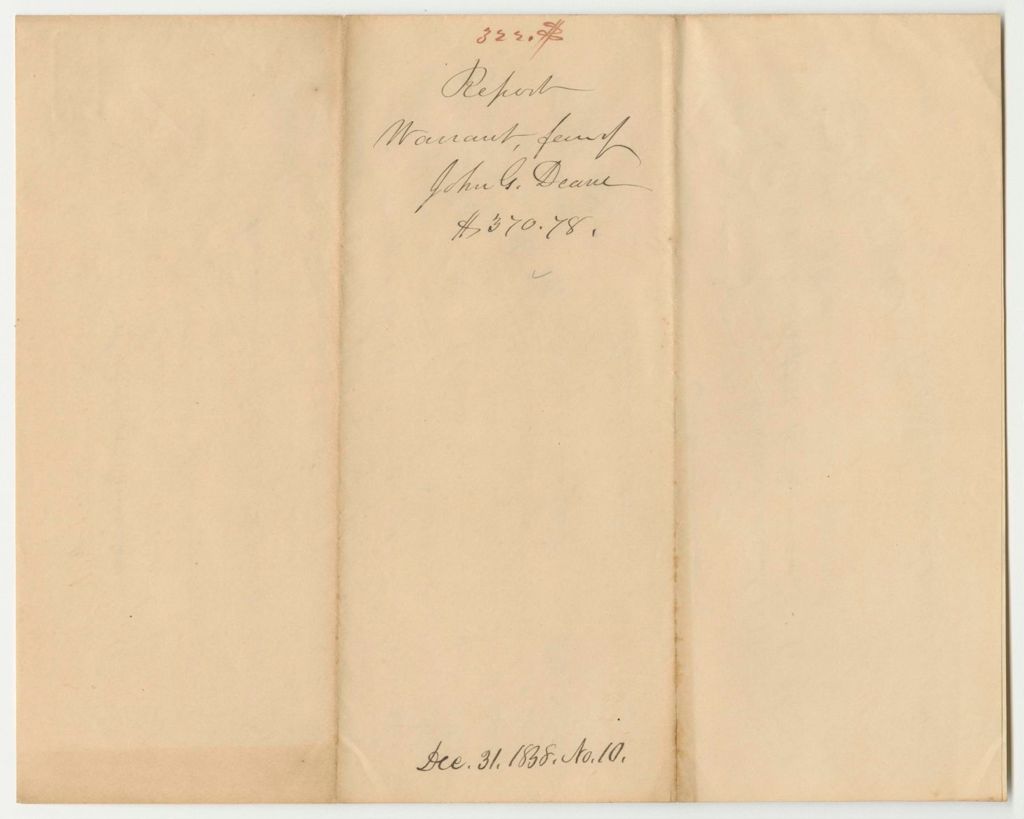 322.
Report
Warrant, favor of
John G. Deane
$370.78.
Dec. 31. 1838. No. 10.